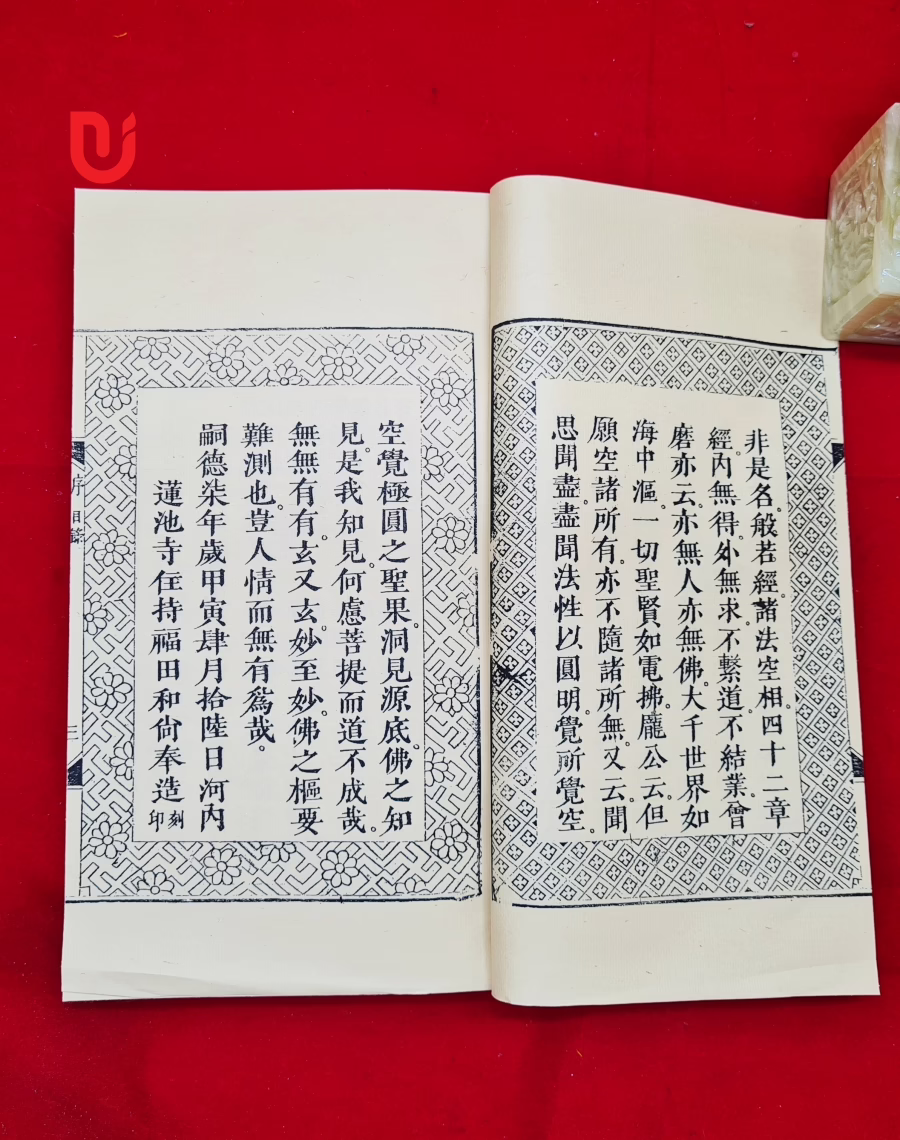 非是名。般若經。諸法空相。四十二章
經。內無得。外無求。不繫道。不結業。曾
磨亦云。亦無人亦無佛。大千世界如
海中漚。一切聖賢如電拂。龐公云。但
願空諸所有。亦不隨諸所無。又云。聞
思聞盡。盡聞法性以圓明。覺所覺空。
空覺極圓之聖果。洞見源底。佛之知
見。是我知見。何慮菩提而道不成哉。
無無有有。玄又玄。妙至妙。佛之樞要
難測也。豈人情而無有爲哉。
嗣德柒年歲甲寅肆月拾陸日河內
蓮池寺住持福田和尙奉造刻印
序
三